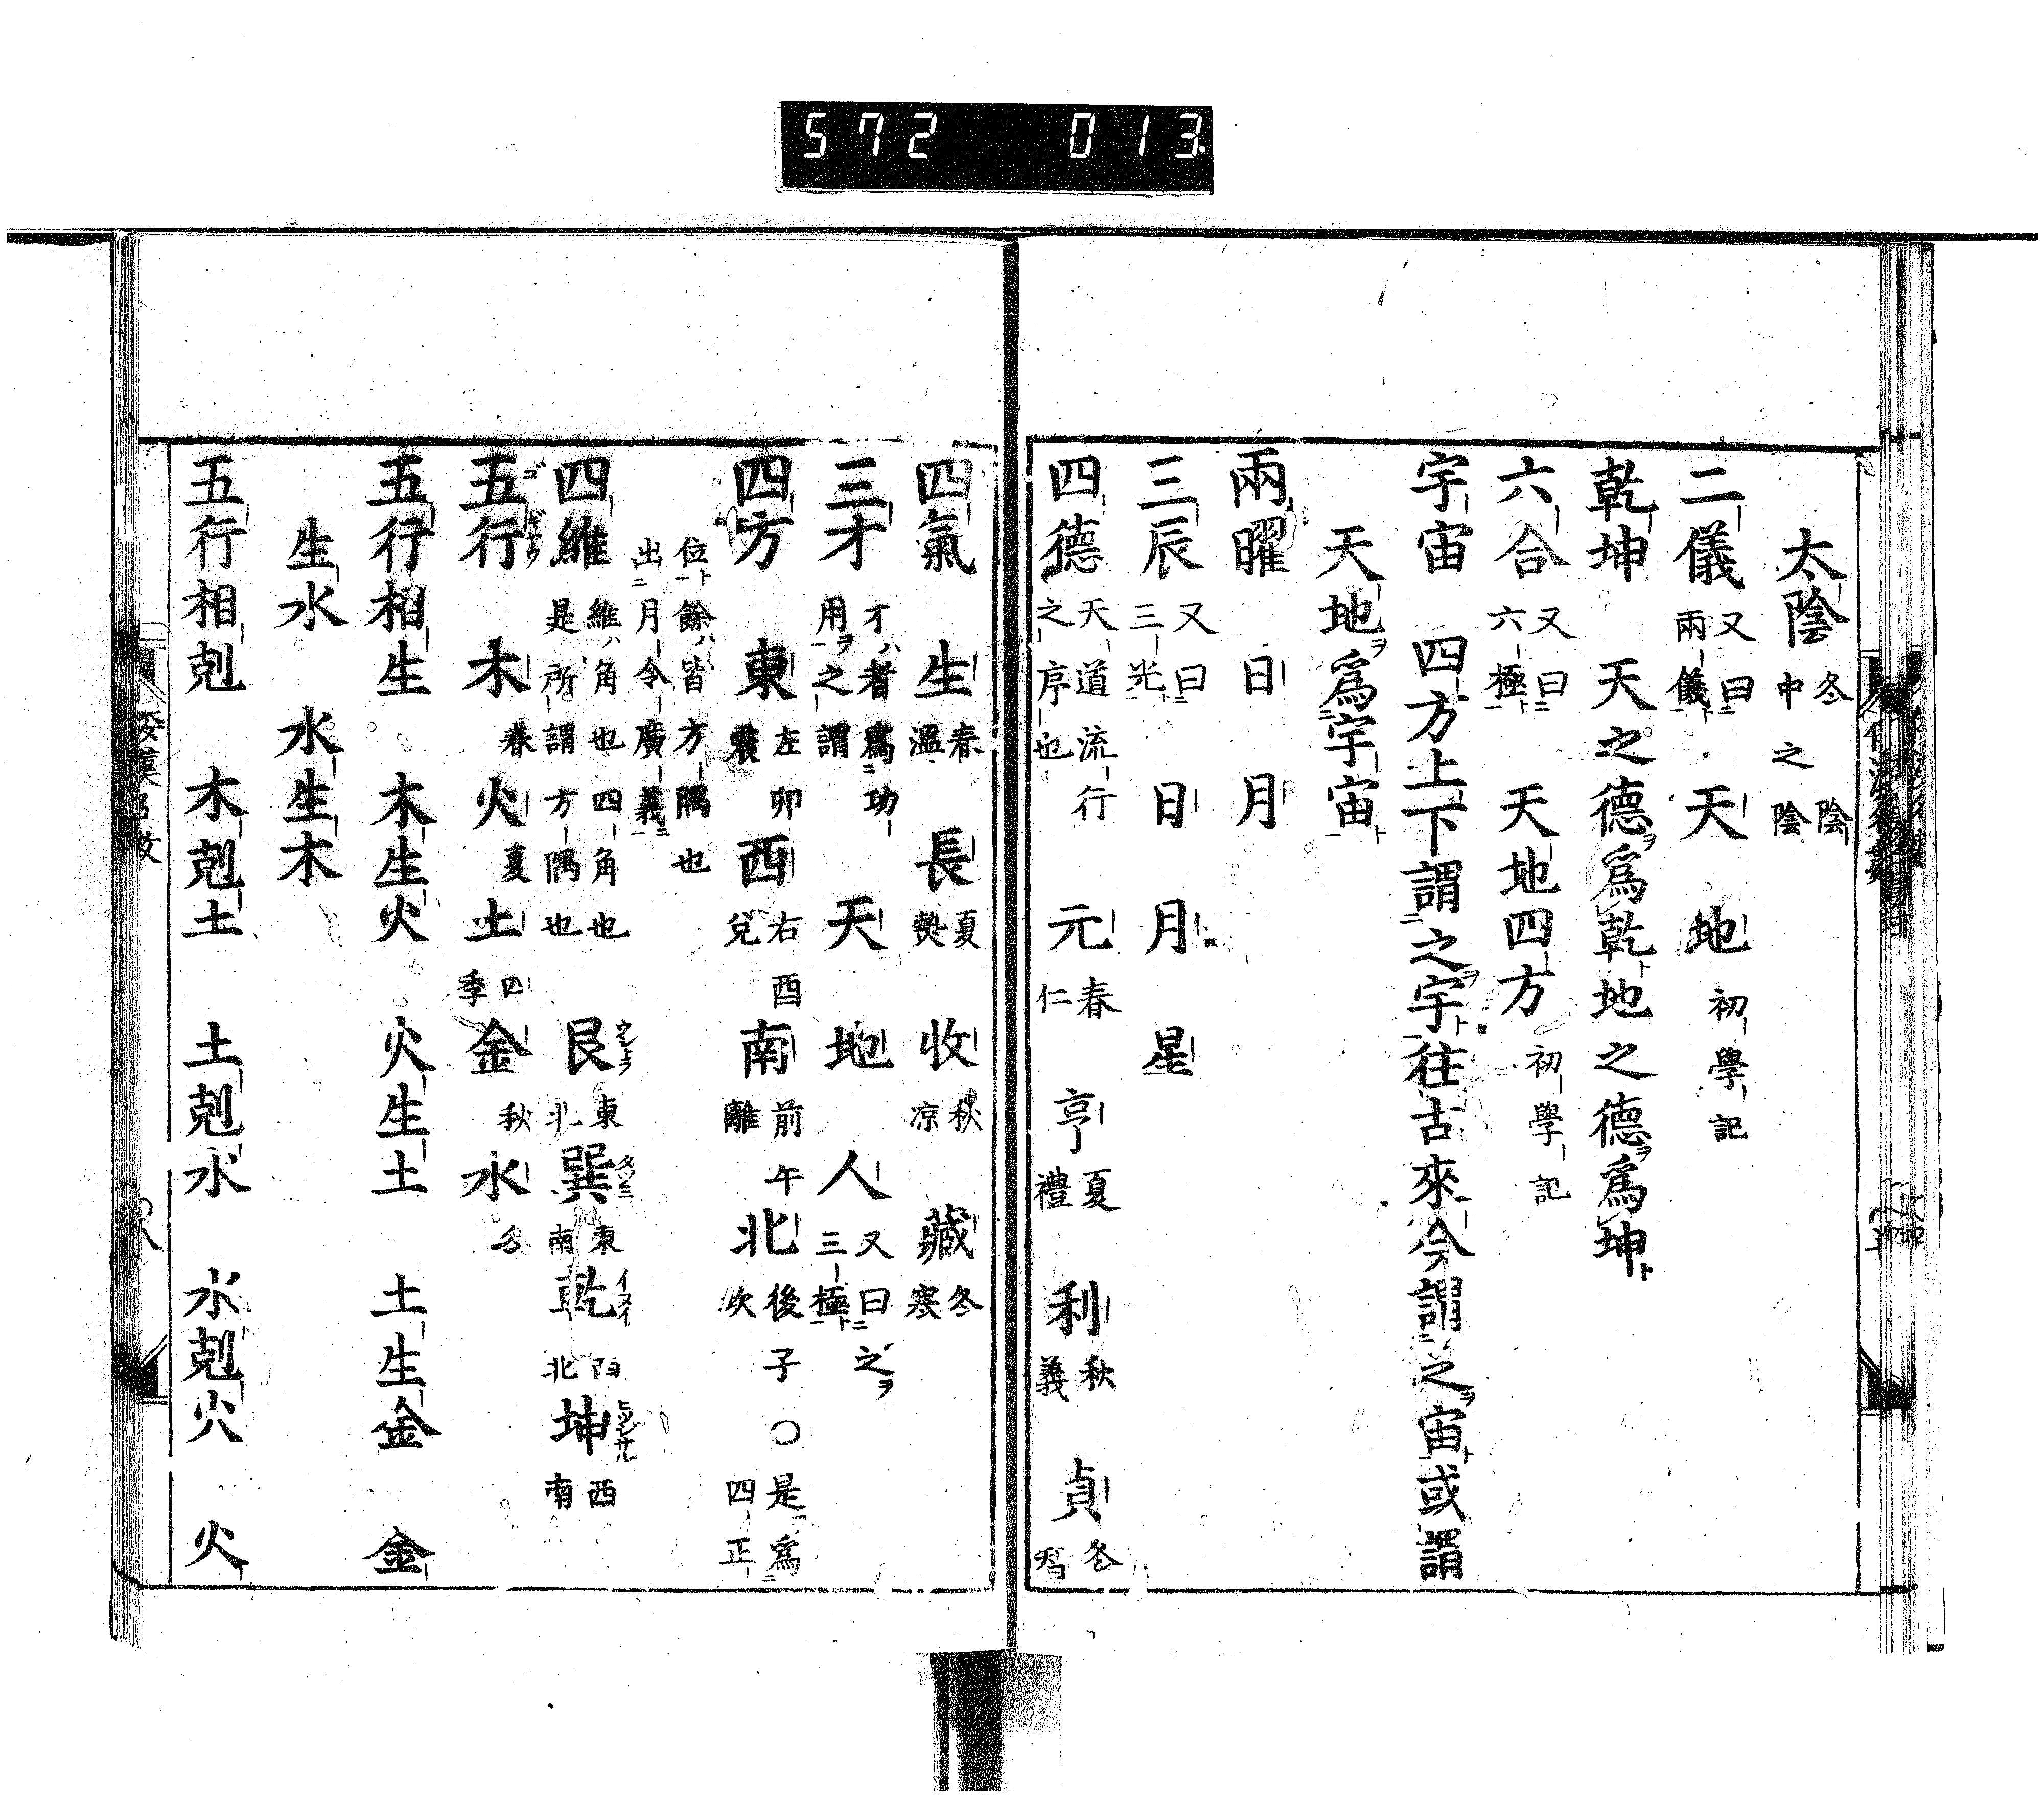 572 013
太陰 冬中之陰陰
二儀 又曰兩儀 天 地 初學記
乾坤 天之德爲乾地之德爲坤
六合 又曰六極 天地四方 初學記
宇宙 四方上下謂之宇往古來今謂之宙或謂
天地爲宇宙
兩曜 日 月
三辰 又曰三光 日 月 星
四德 天道流行之序也 元 春仁 亨 夏禮 利 秋義 貞 冬智
四氣 生 春溫 長 夏熱 收 秋凉 藏 冬寒
三才 才者爲功用之謂 天 地 人 又曰之三極
四方 東 左卯震 西 右酉兌 南 前午離 北 後子坎 〇是爲四正
位餘皆方隅也出月令廣義
四維 維角也四角也是所謂方隅也 艮 東北 巽 東南 乾 西北 坤 西南
五行 木 春 火 夏 土 四季 金 秋 水 冬
五行相生 木生火 火生土 土生金 金
生水 水生木
五行相剋 木剋土 土剋水 水剋火 火